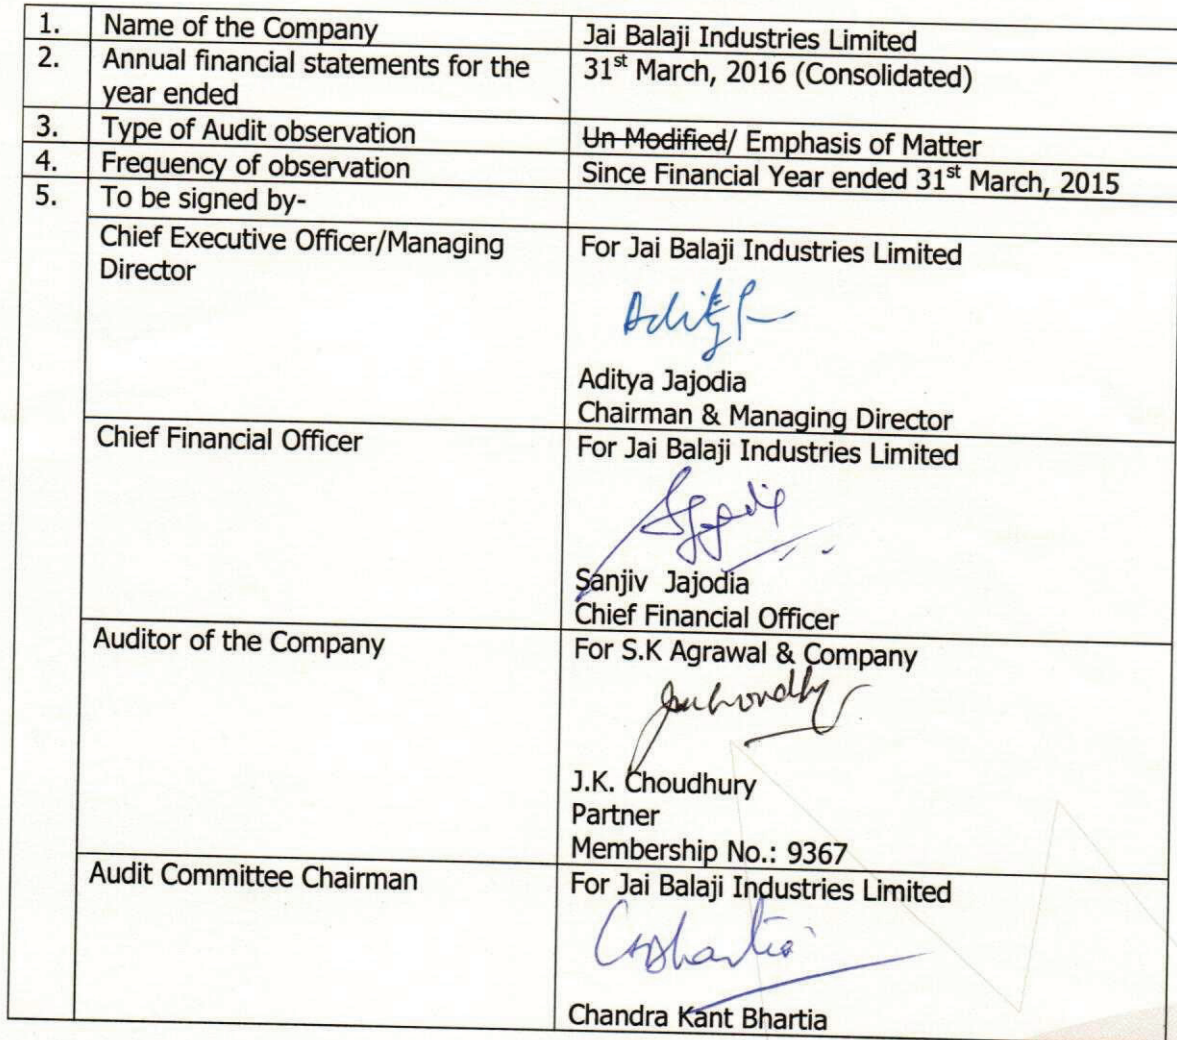 1. Name of the Company Jai Balaji Industries Limited
2. Annual financial statements for the 31st March, 2016 (Consolidated)
year ended
3. Type of Audit observation Un Modified/ Emphasis of Matter
4. Frequency of observation Since Financial Year ended 31st March, 2015
5. To be signed by-
Chief Executive Officer/Managing For Jai Balaji Industries Limited
Director
Aditya Jajodia
Chairman & Managing Director
Chief Financial Officer For Jai Balaji Industries Limited
Sanjiv Jajodia
Chief Financial Officer
Auditor of the Company For S.K Agrawal & Company
J.K. Choudhury
Partner
Membership No.: 9367
Audit Committee Chairman For Jai Balaji Industries Limited
Chandra Kant Bhartia